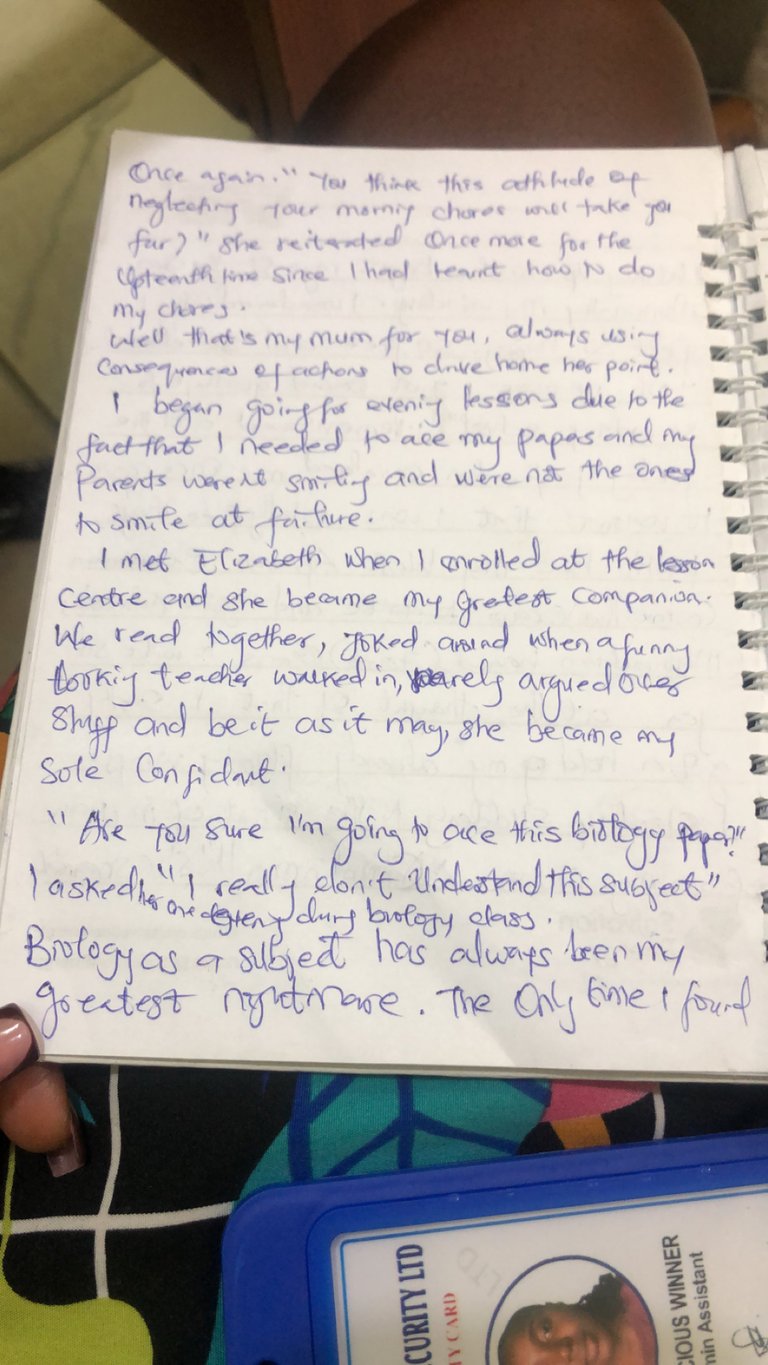 Once again." You think this attitude of
neglecting your morning chores will take you
far?" She reiterated Once more for the
Upteenth time since I had learnt how to do
my chores.
Well that's my mum for you, always using
Consequences of actions to drive home her point.
I began going for evening lessons due to the
fact that I needed to ace my papers and my
Parents weren't smiling and were not the ones
to smile at failure.
I met Elizabeth when I enrolled at the lesson
Centre and she became my gretest Companion.
We read together, joked around when a funny
looking teacher walked in, rarely argued over
Stuff and be it as it may, she became my
Sole Confidant.
"Are You Sure I'm going to ace this biology paper?"
I asked her "I really don't Understand this subject"
one evening during biology class.
Biology as a subject has always been my
greatest nightmare. The Only time I found
CURITY LTD
TY CARD
LTD
IOUS WINNER
min Assistant